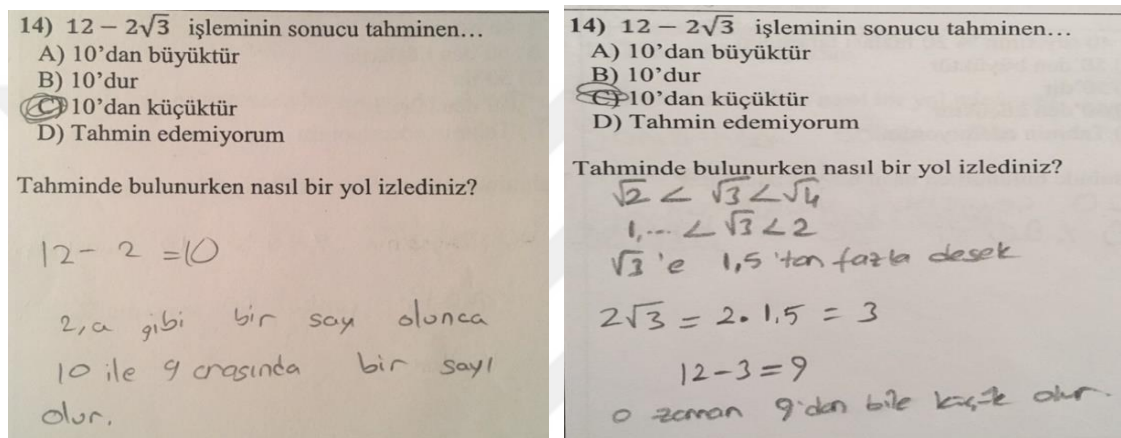 14) 12 − 2√3 işleminin sonucu tahminen…
A) 10’dan büyüktür
B) 10’dur
C) 10’dan küçüktür
D) Tahmin edemiyorum
Tahminde bulunurken nasıl bir yol izlediniz?
12 - 2 = 10
2,a gibi bir sayı olunca
10 ile 9 arasında bir sayı
olur.
14) 12 − 2√3 işleminin sonucu tahminen…
A) 10’dan büyüktür
B) 10’dur
C) 10’dan küçüktür
D) Tahmin edemiyorum
Tahminde bulunurken nasıl bir yol izlediniz?
√2 < √3 < √4
1,... < √3 < 2
√3 'e 1,5 'ten fazla desek
2√3 = 2. 1,5 = 3
12-3 = 9
o zaman 9'dan bile küçük olur.